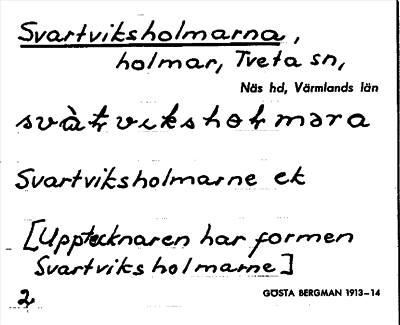 Svartviksholmarna,
holmar, Tveta sn,
Näs hd, Värmlands län
Svartviksholmarne ek
[Upptecknaren har formen
Svartviksholmarne]
2
GÖSTA BERGMAN 1913–14